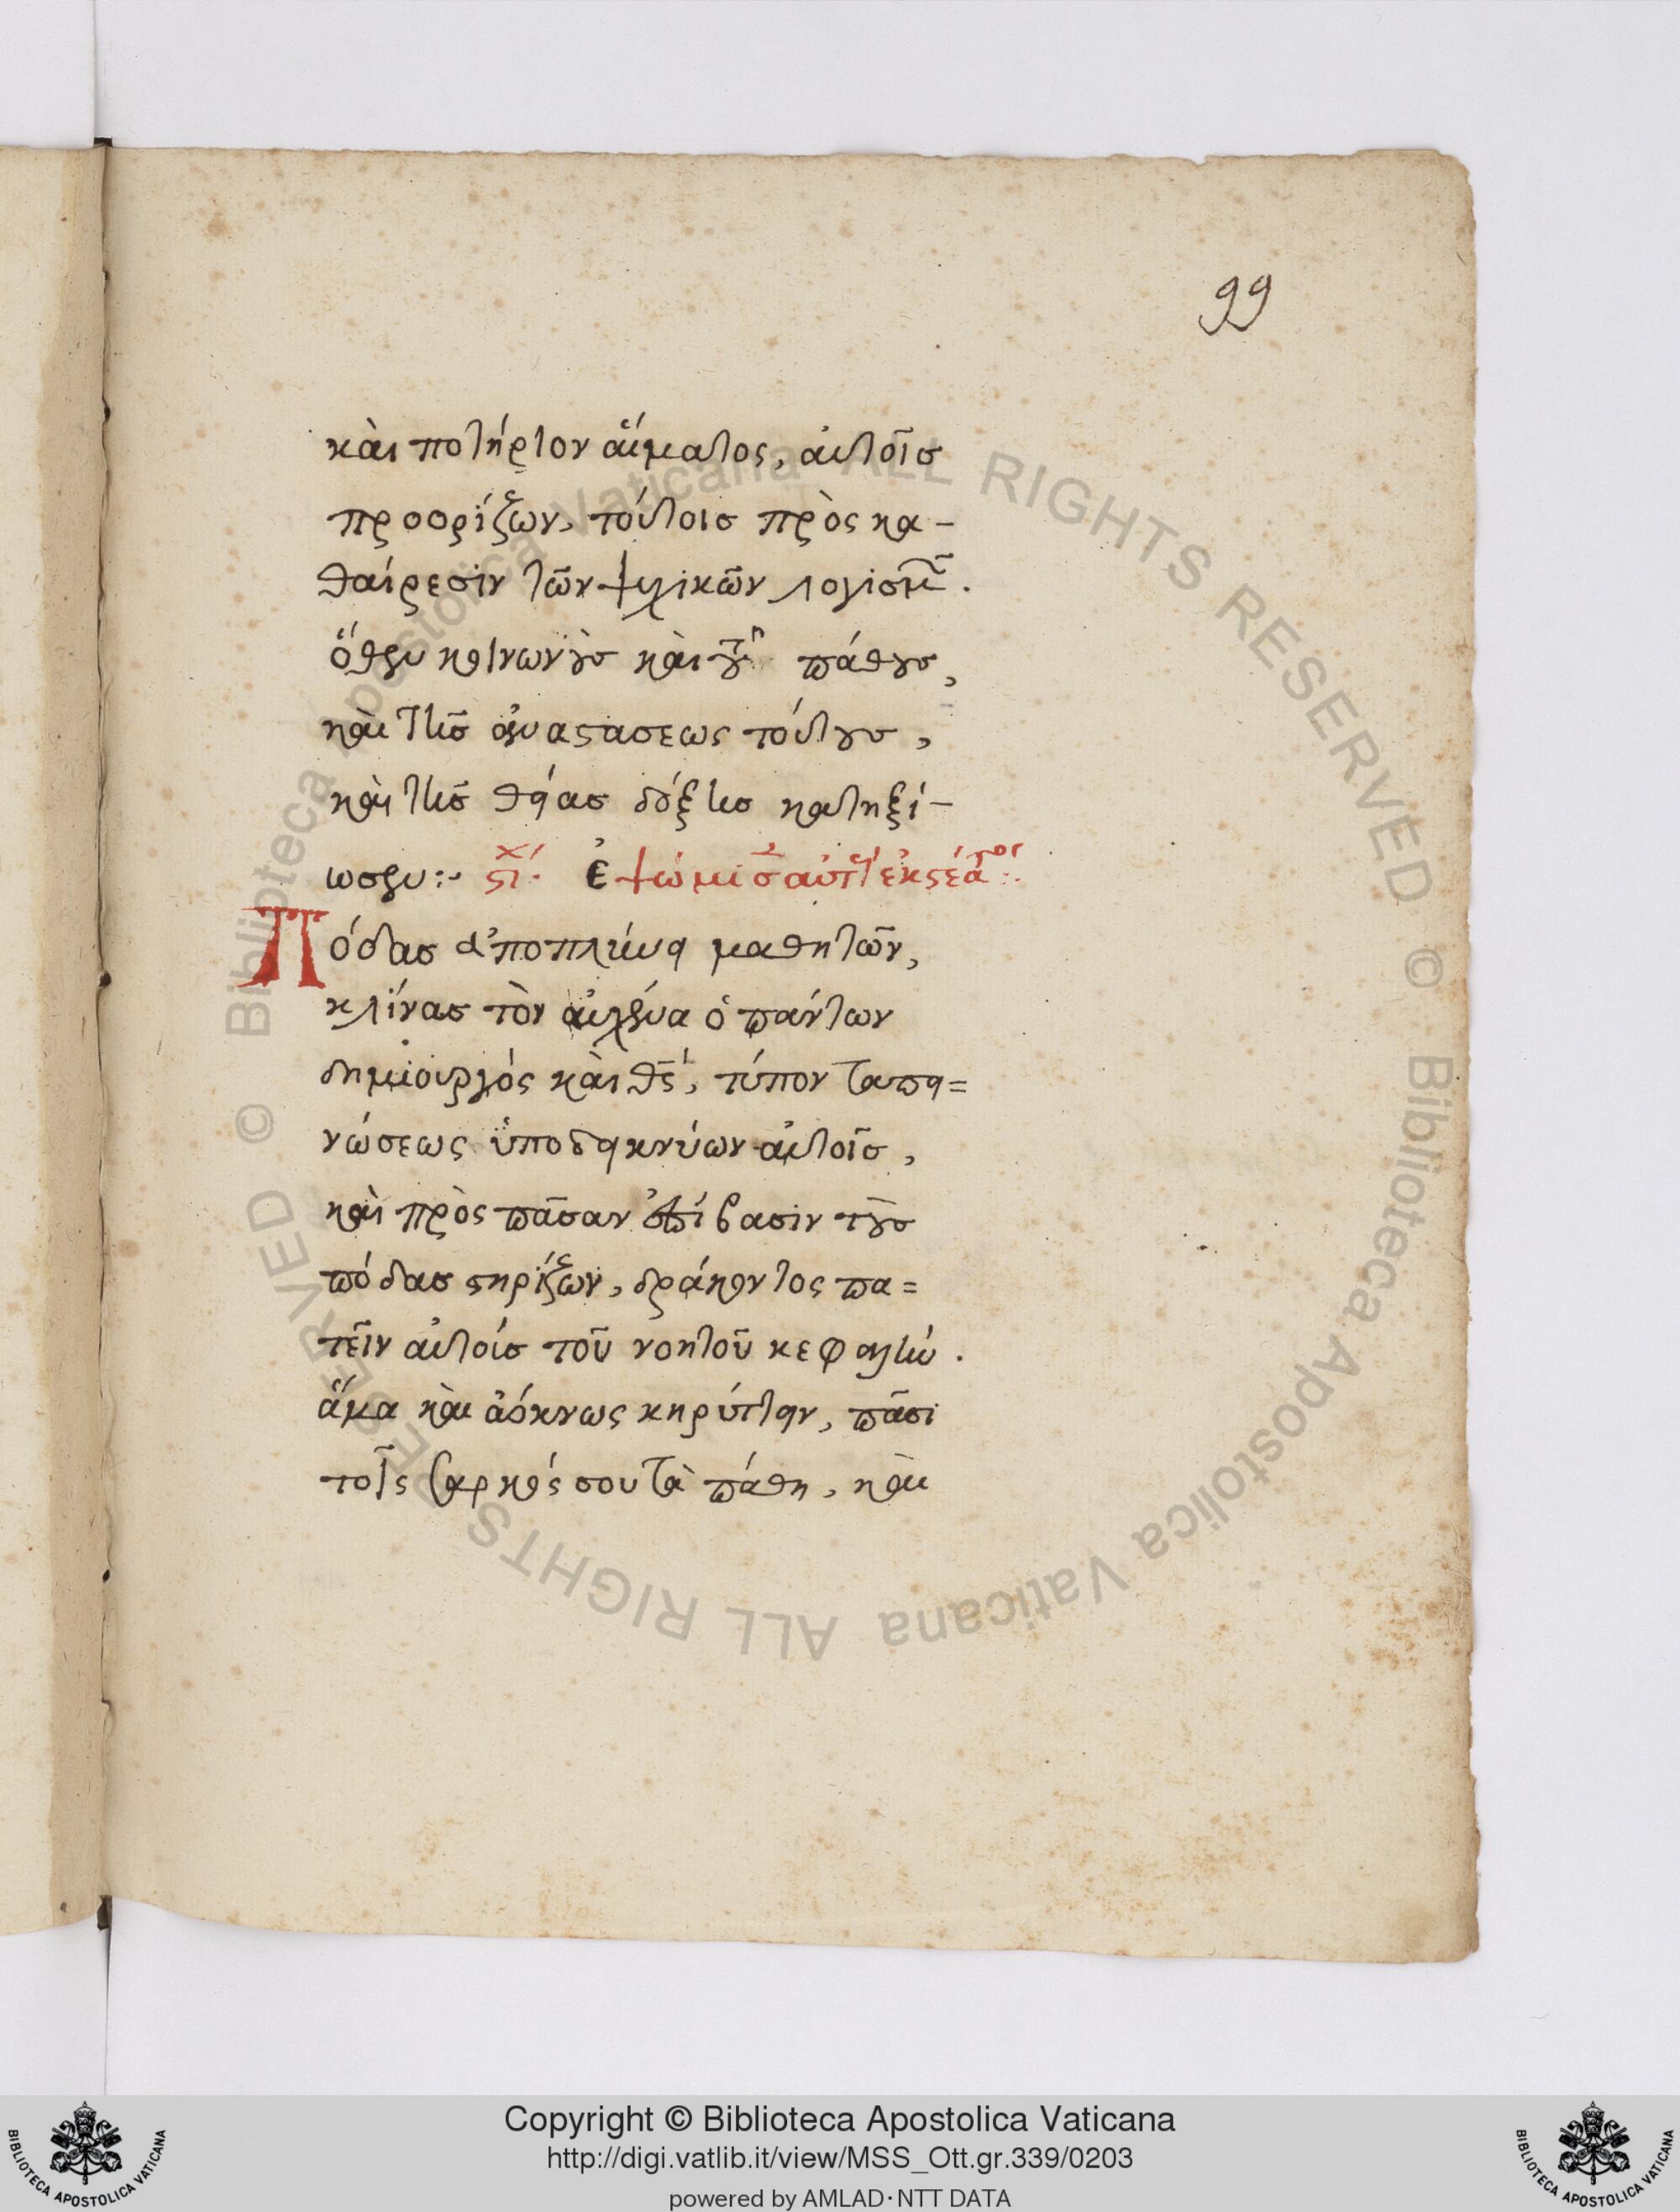 99
καὶ ποτήριον αἵματος, αὐτοῖσ
προορίζων, τούτοισ πρὸς κα-
θαίρεσιν τῶν ψυχικῶν λογισμ̃.
ὅθεν κοινωνοὺσ καὶ τοῦ πάθουσ,
καὶ τῆσ ἀναστάσεως τούτουσ,
καὶ τῆσ θείασ δόξησ κατηξί-
ωσεν:
Πόδασ ἀποπλύνει μαθητῶν,
κλίνασ τὸν αὐχένα ὁ πάντων
δημιουργός καὶ θς̄, τύπον ταπει=
νώσεως ὑποδεικνύων αὐτοῖσ,
καὶ πρὸς πᾶσαν ἐπίβασιν τοὺσ
πόδασ στηρίζων, δράκοντος πα=
τεῖν αὐτοίσ τοῦ νοητοῦ κεφαλὴν.
ἅμα καὶ ἀόκνως κηρύττειν, πᾶσι
τοῖς σαρκός σου τὰ πάθη, καὶ
© Biblioteca Apostolica Vaticana ALL RIGHTS RESERVED © Biblioteca Apostolica Vaticana ALL RIGHTS RESERVED
Copyright © Biblioteca Apostolica Vaticana
http://digi.vatlib.it/view/MSS_Ott.gr.339/0203
powered by AMLAD·NTT DATA
BIBLIOTECA APOSTOLICA VATICANA
BIBLIOTECA APOSTOLICA VATICANA